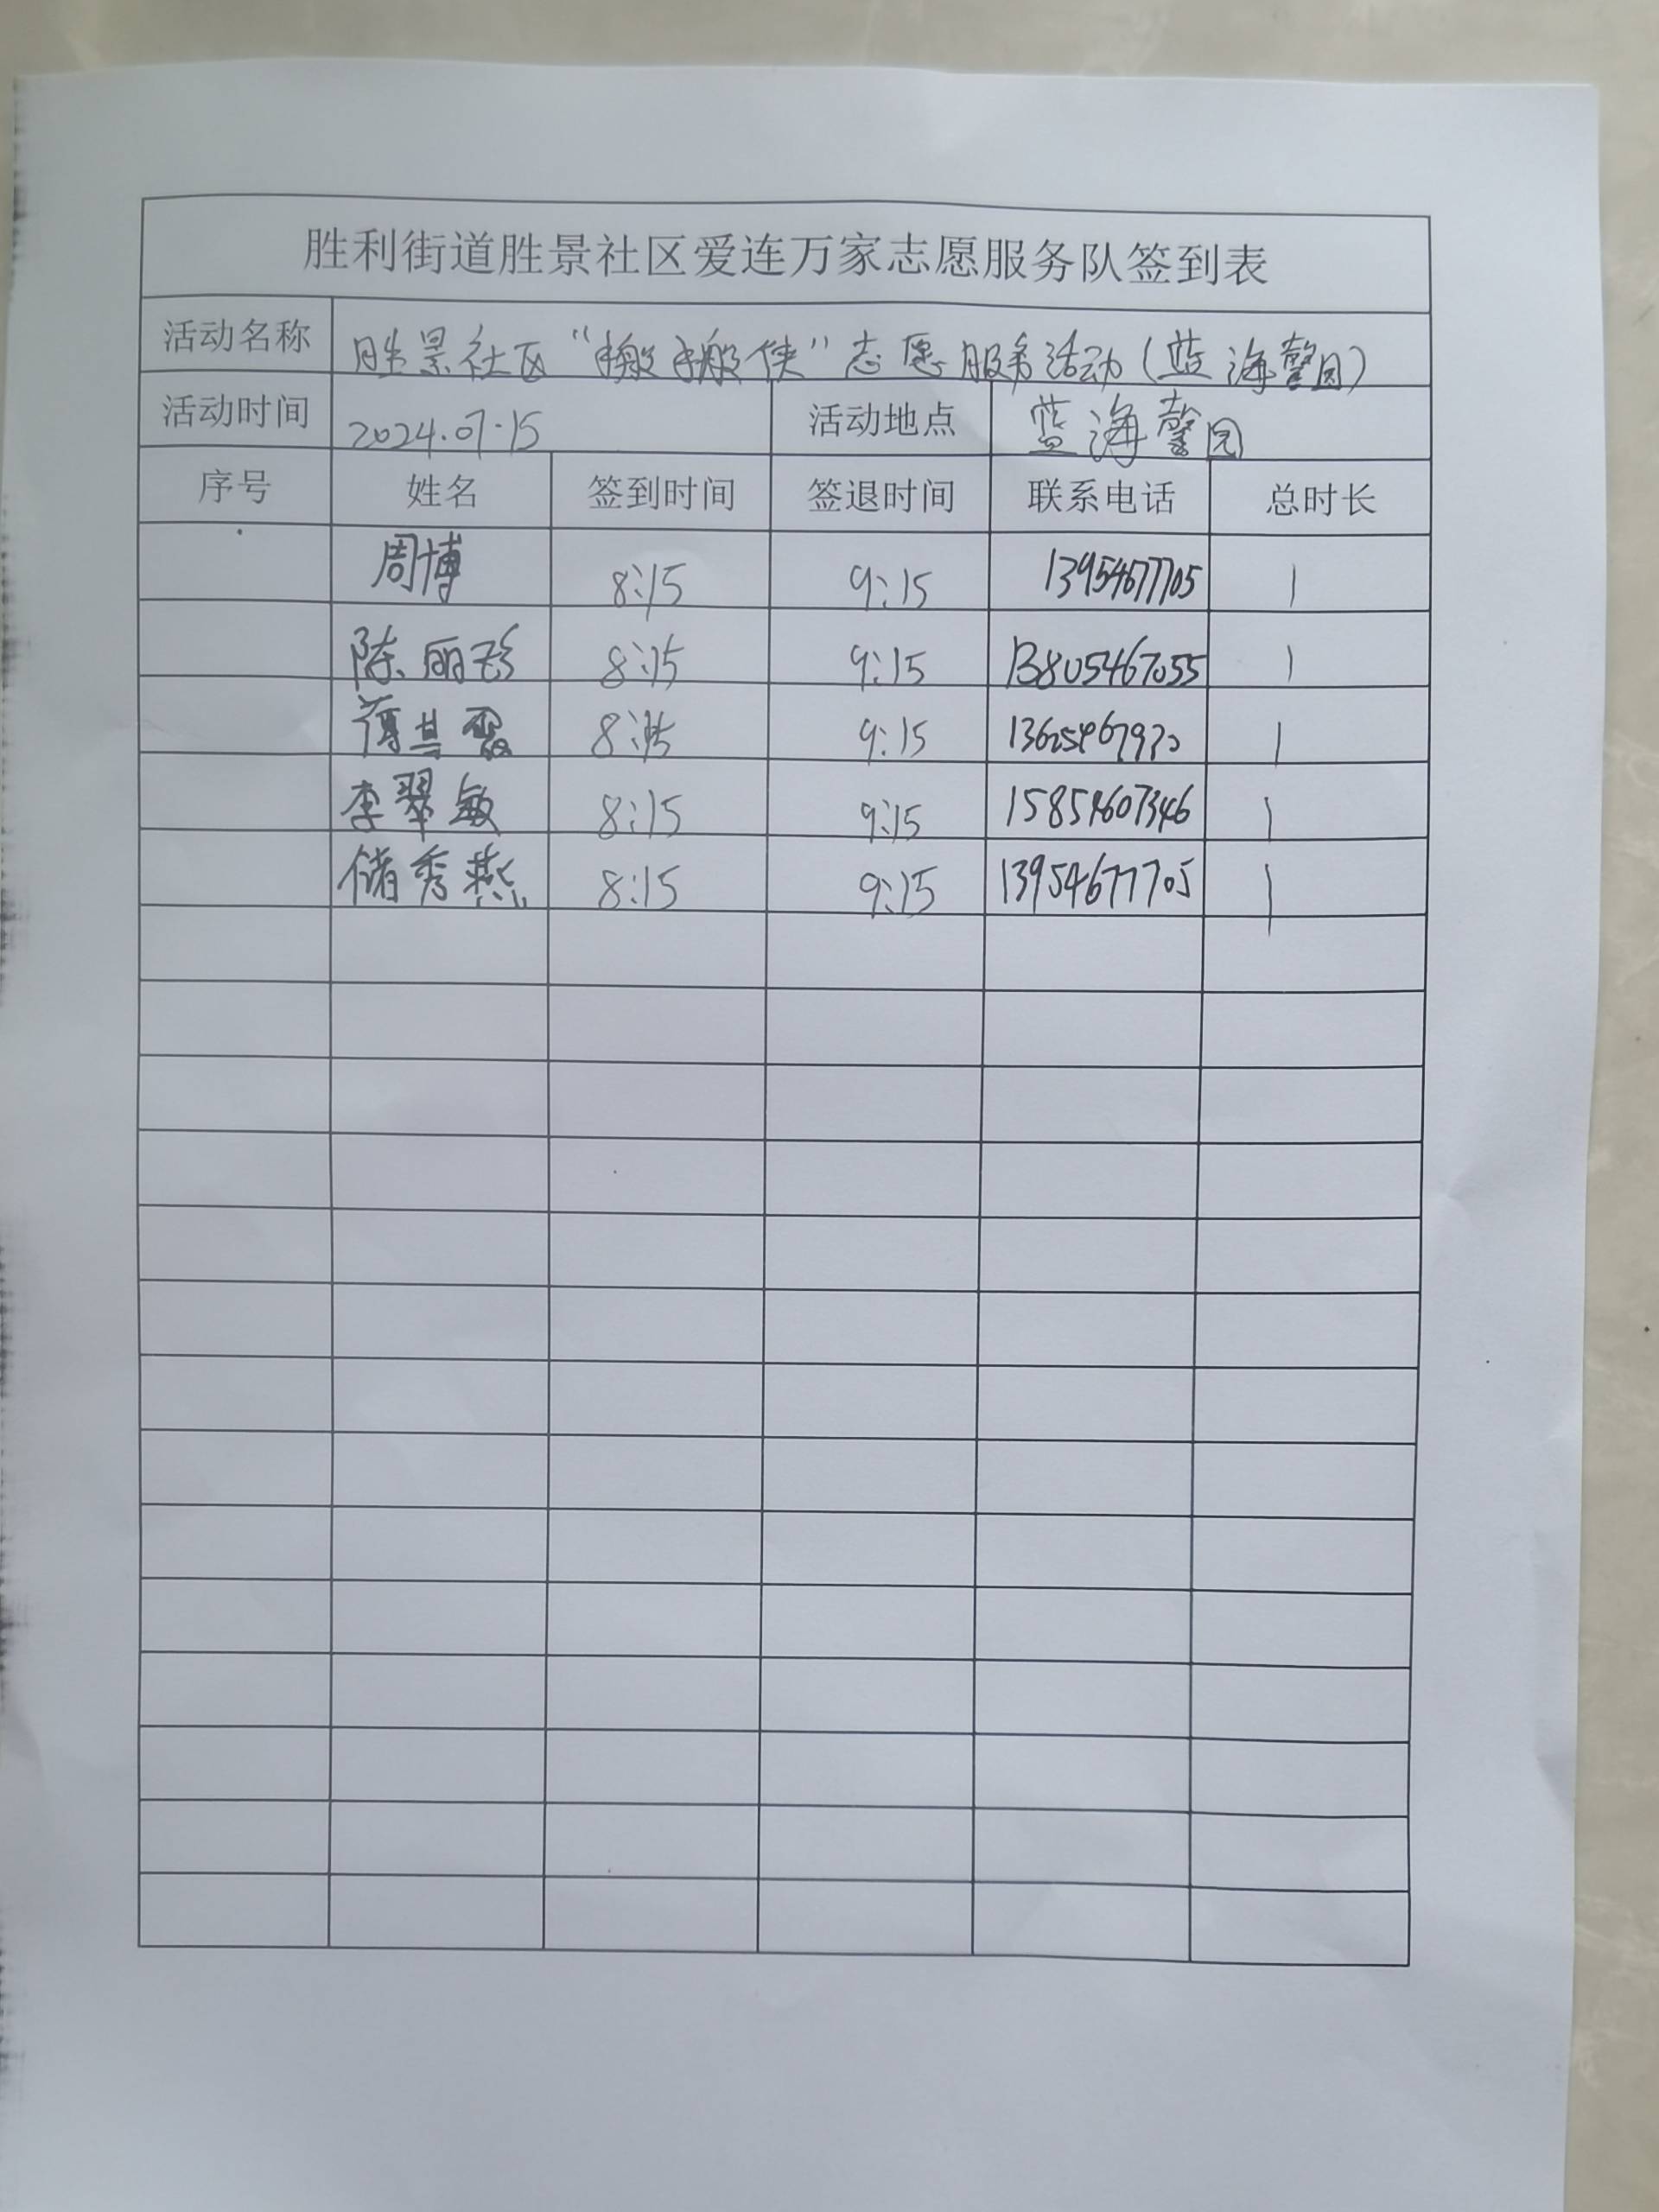 胜利街道胜景社区爱连万家志愿服务队签到表
活动名称 胜景社区“搬搬侠”志愿服务活动（蓝海馨园）
活动时间 2024.07.15 活动地点 蓝海馨园
序号 姓名 签到时间 签退时间 联系电话 总时长
周博 8:15 9:15 13954677705 1
陈丽珍 8:15 9:15 13805467055 1
薄其 8:15 9:15 1
李翠敏 8:15 9:15 15854607346 1
储秀燕 8:15 9:15 13954677705 1